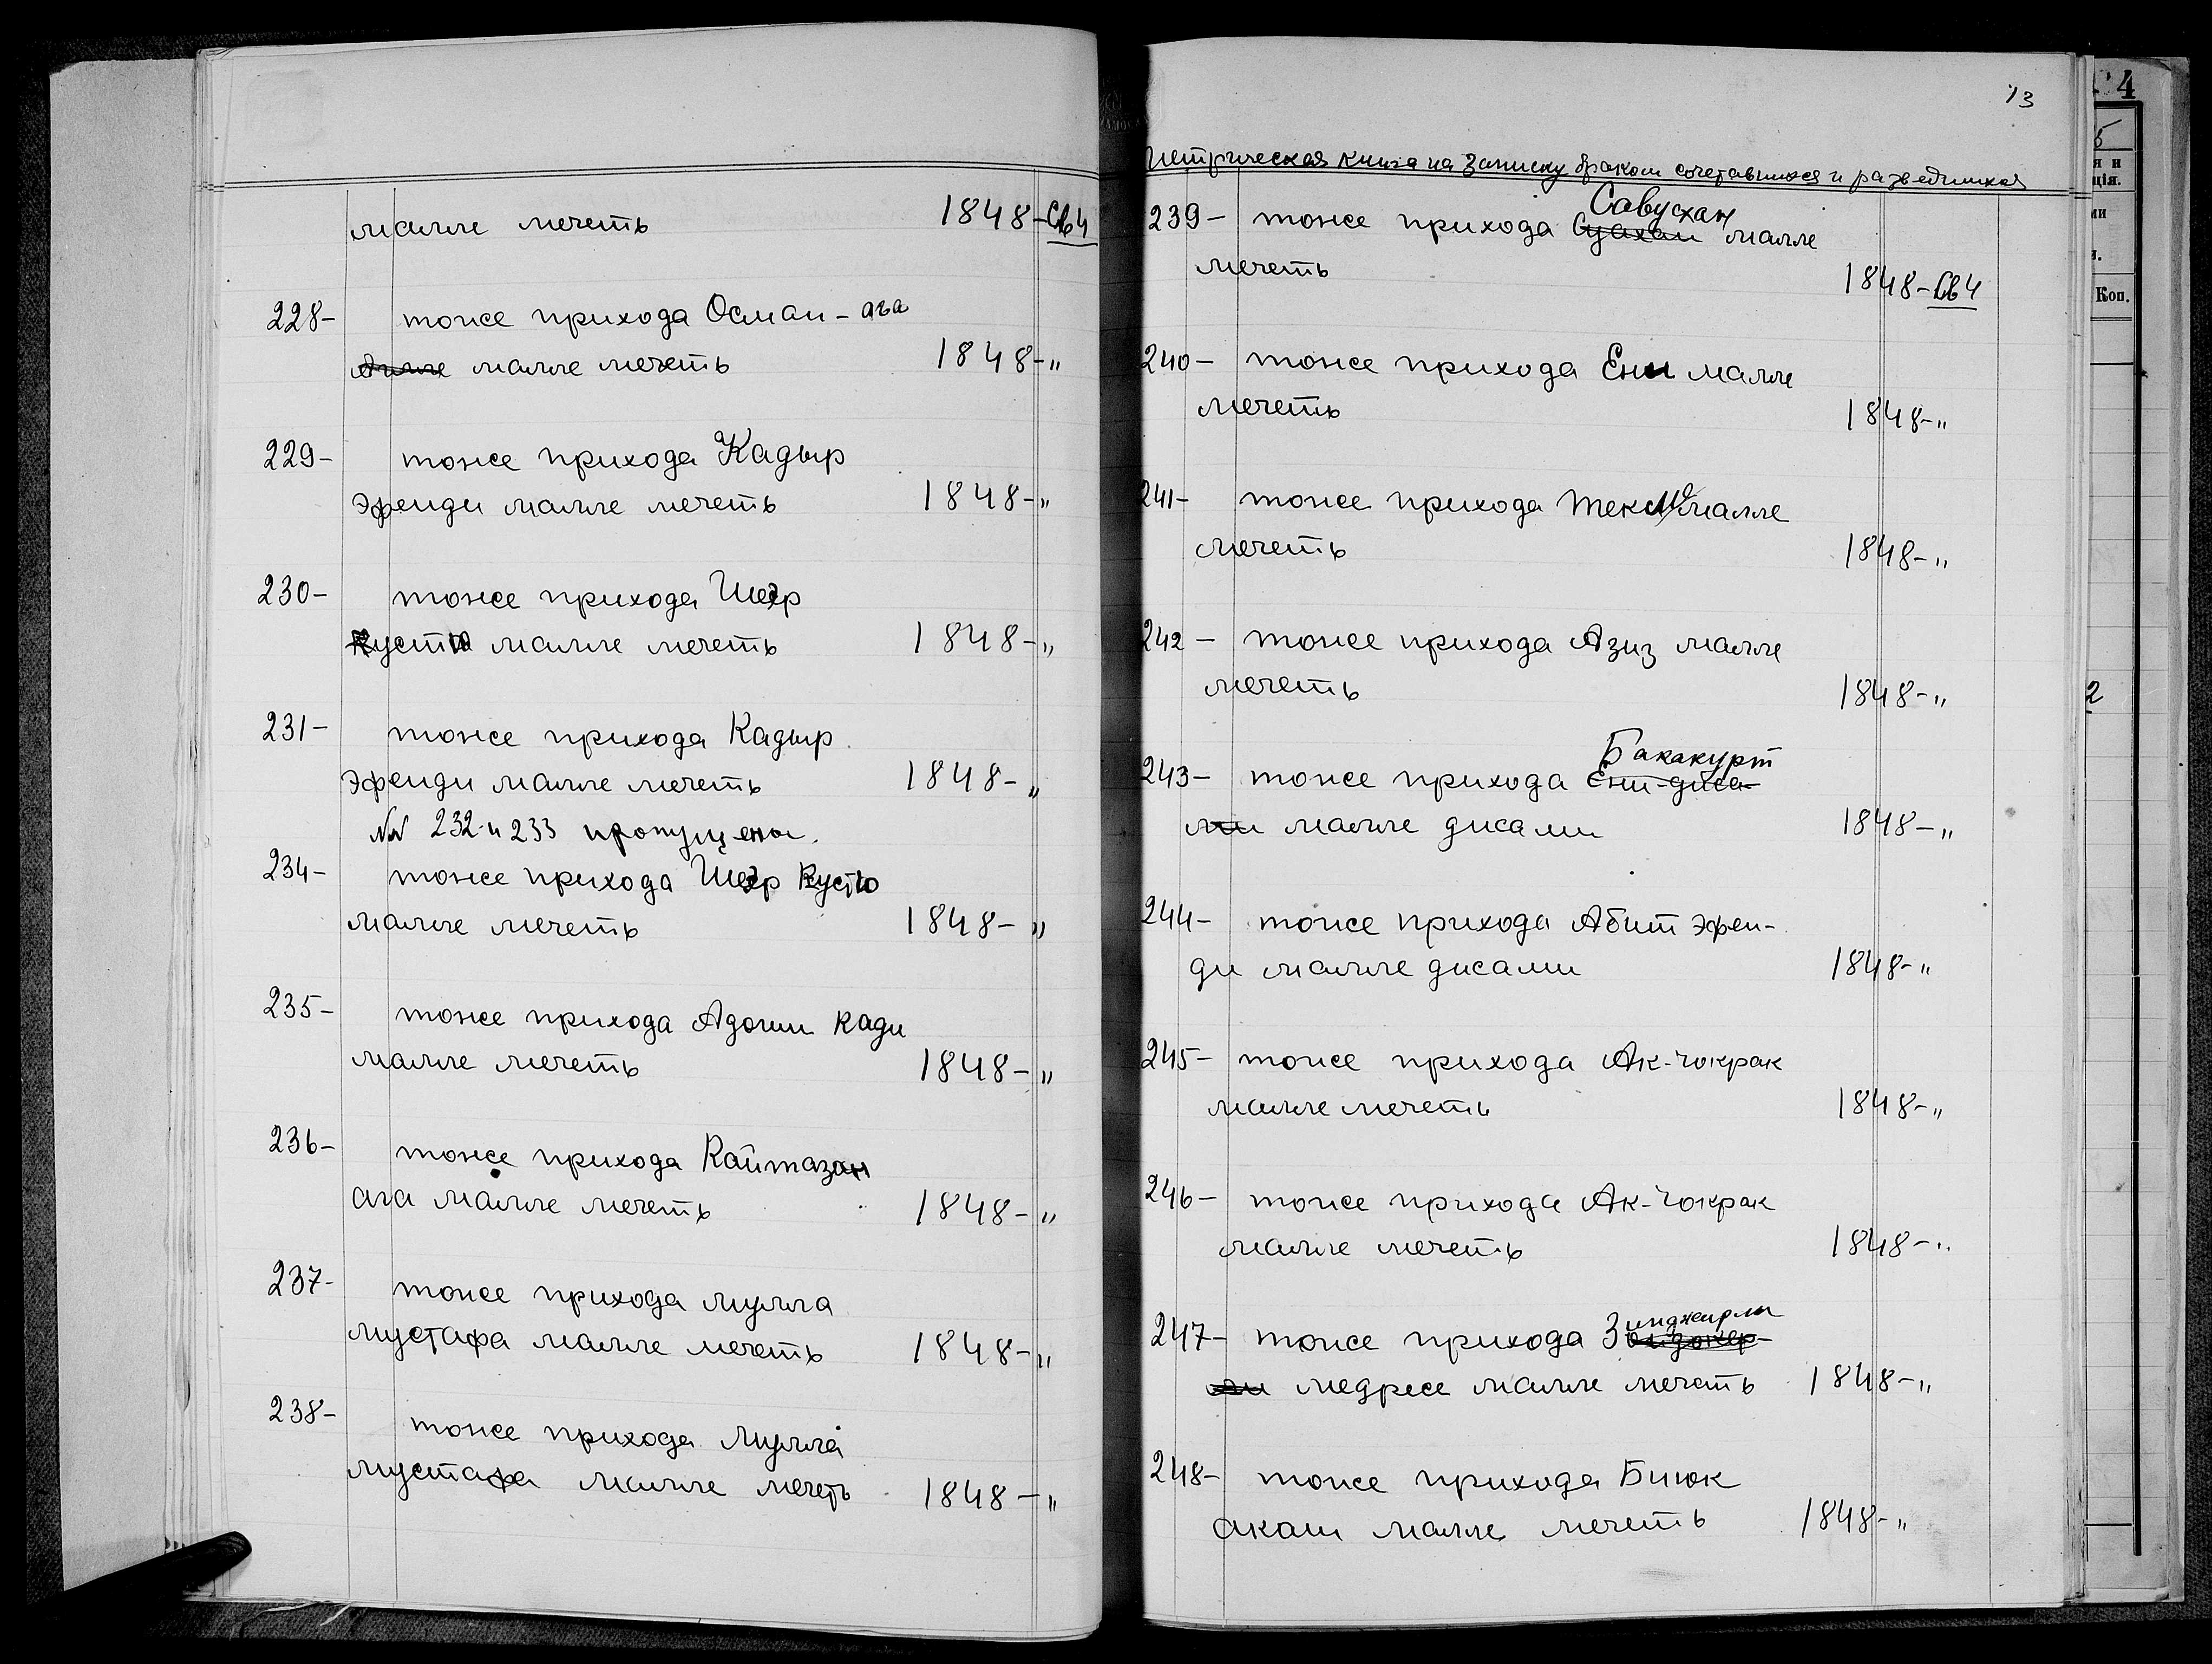 малле мечеть 1848-Св4
228- тоже прихода Осман-ага
малле мечеть 1848-"
229- тоже прихода Кадыр
Эфенди малле мечеть 1848-"
230- тоже прихода Шеэр
Кустю малле мечеть 1848-"
231- тоже прихода Кадыр
Эфенди малле мечеть 1848-"
NN 232 и 233 пропущены.
234- тоже прихода Шеэр Кустю
малле мечеть 1848-"
235- тоже прихода Адоши кади
малле мечеть 1848-"
236- тоже прихода Кайтазан
ага малле мечеть 1848-"
237- тоже прихода мулла
мустафа малле мечеть 1848-"
238- тоже прихода мулла
мустафа малле мечеть 1848-"
13
Метрическая книга на записку браком сочетавшихся и разведшихся
Савускан
239- тоже прихода малле
мечеть 1848-Св4
240- тоже прихода Ени малле
мечеть 1848-"
241- тоже прихода малле
мечеть 1848-"
242- тоже прихода Азиз малле
мечеть 1848-"
Бакакурт
243- тоже прихода Ени-джа-
ми малле джами 1848-"
244- тоже прихода Абит эфен-
ди малле джами 1848-"
245- тоже прихода Ак-чокрак
малле мечеть 1848-"
246- тоже прихода Ак-чокрак
малле мечеть 1848-"
247- тоже прихода Зинджирли
медресе малле мечеть 1848-"
248- тоже прихода Биюк
акаш малле мечеть 1848-"
4
5
Коп.
2